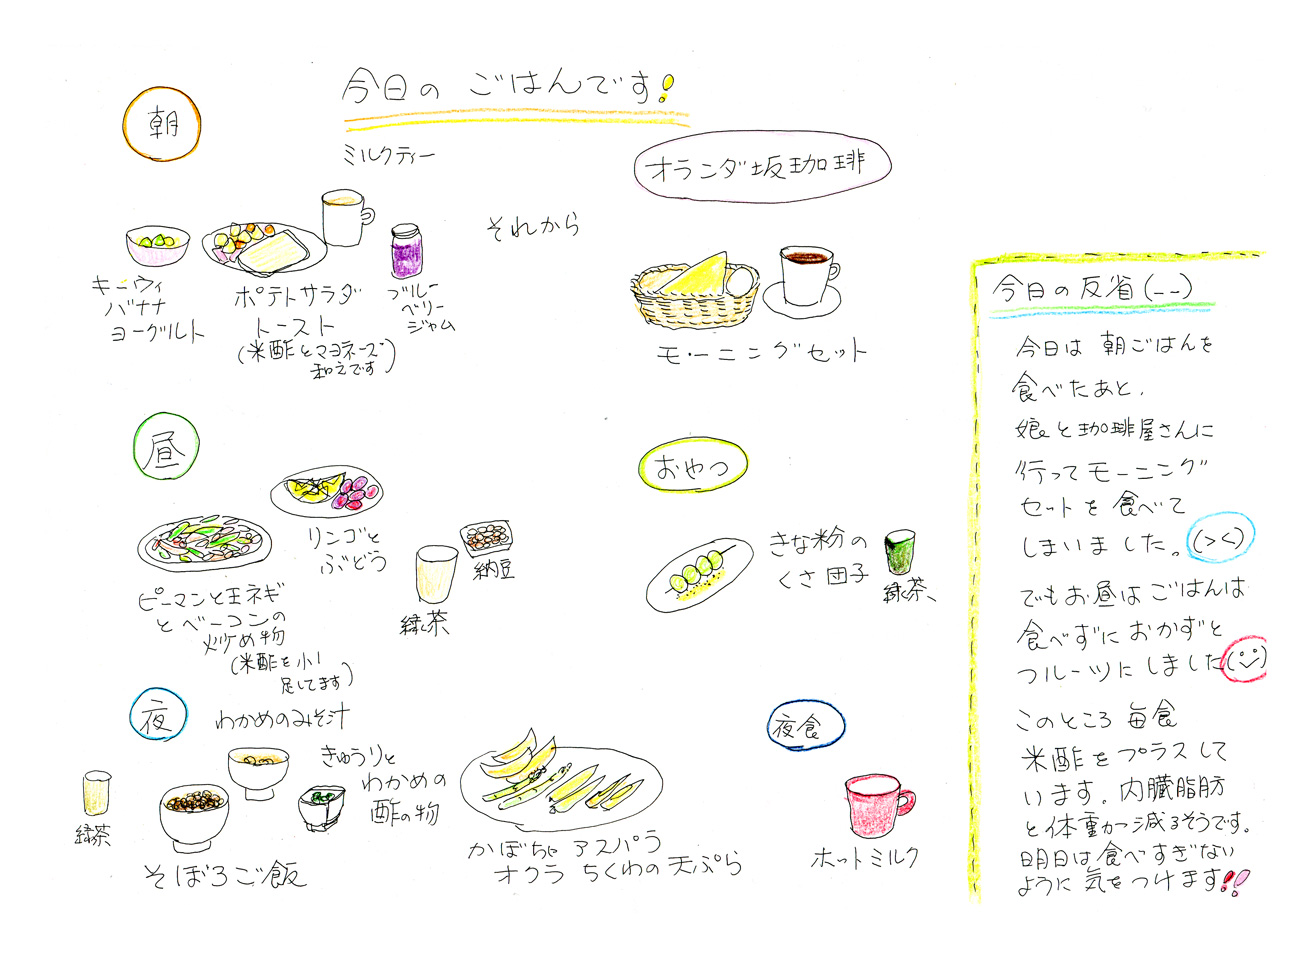 今日の ごはんです!
朝
ミルクティー
キーウィ
バナナ
ヨーグルト
ポテトサラダ
トースト
(米酢とマヨネーズ
和えです)
ブルー
ベリー
ジャム
それから
オランダ坂珈琲
モーニングセット
昼
ピーマンと玉ネギ
とベーコンの
炒め物
(米酢を小1
足してます)
リンゴと
ぶどう
緑茶
納豆
おやつ
きな粉の
くさ団子
緑茶、
夜
わかめのみそ汁
緑茶
そぼろご飯
きゅうりと
わかめの
酢の物
かぼちゃ アスパラ
オクラ ちくわの天ぷら
夜食
ホットミルク
今日の反省(--)
今日は 朝ごはんを
食べたあと、
娘と珈琲屋さんに
行ってモーニング
セットを食べて
しまいました。(><)
でもお昼はごはんは
食べずにおかずと
フルーツにしました
このところ 毎食
米酢をプラスして
います。内臓脂肪
と体重が減るそうです。
明日は食べすぎない
ように気をつけます!!